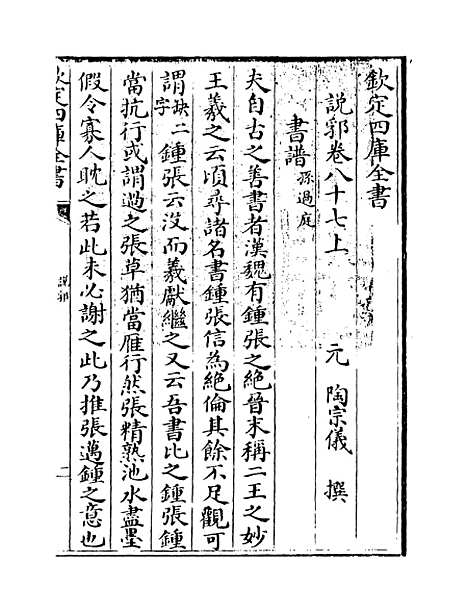 欽定四庫全書
說郛卷八十七上
元 陶宗儀 撰
書譜孫過庭
夫自古之善書者漢魏有鍾張之絶晉末稱二王之妙
王羲之云頃尋諸名書鍾張信為絶倫其餘不足觀可
謂缺二字鍾張云沒而羲獻繼之又云吾書比之鍾張鍾
當抗行或謂過之張草猶當雁行然張精熟池水盡墨
假令寡人耽之若此未必謝之此乃推張邁鍾之意也
欽定四庫全書
說郛